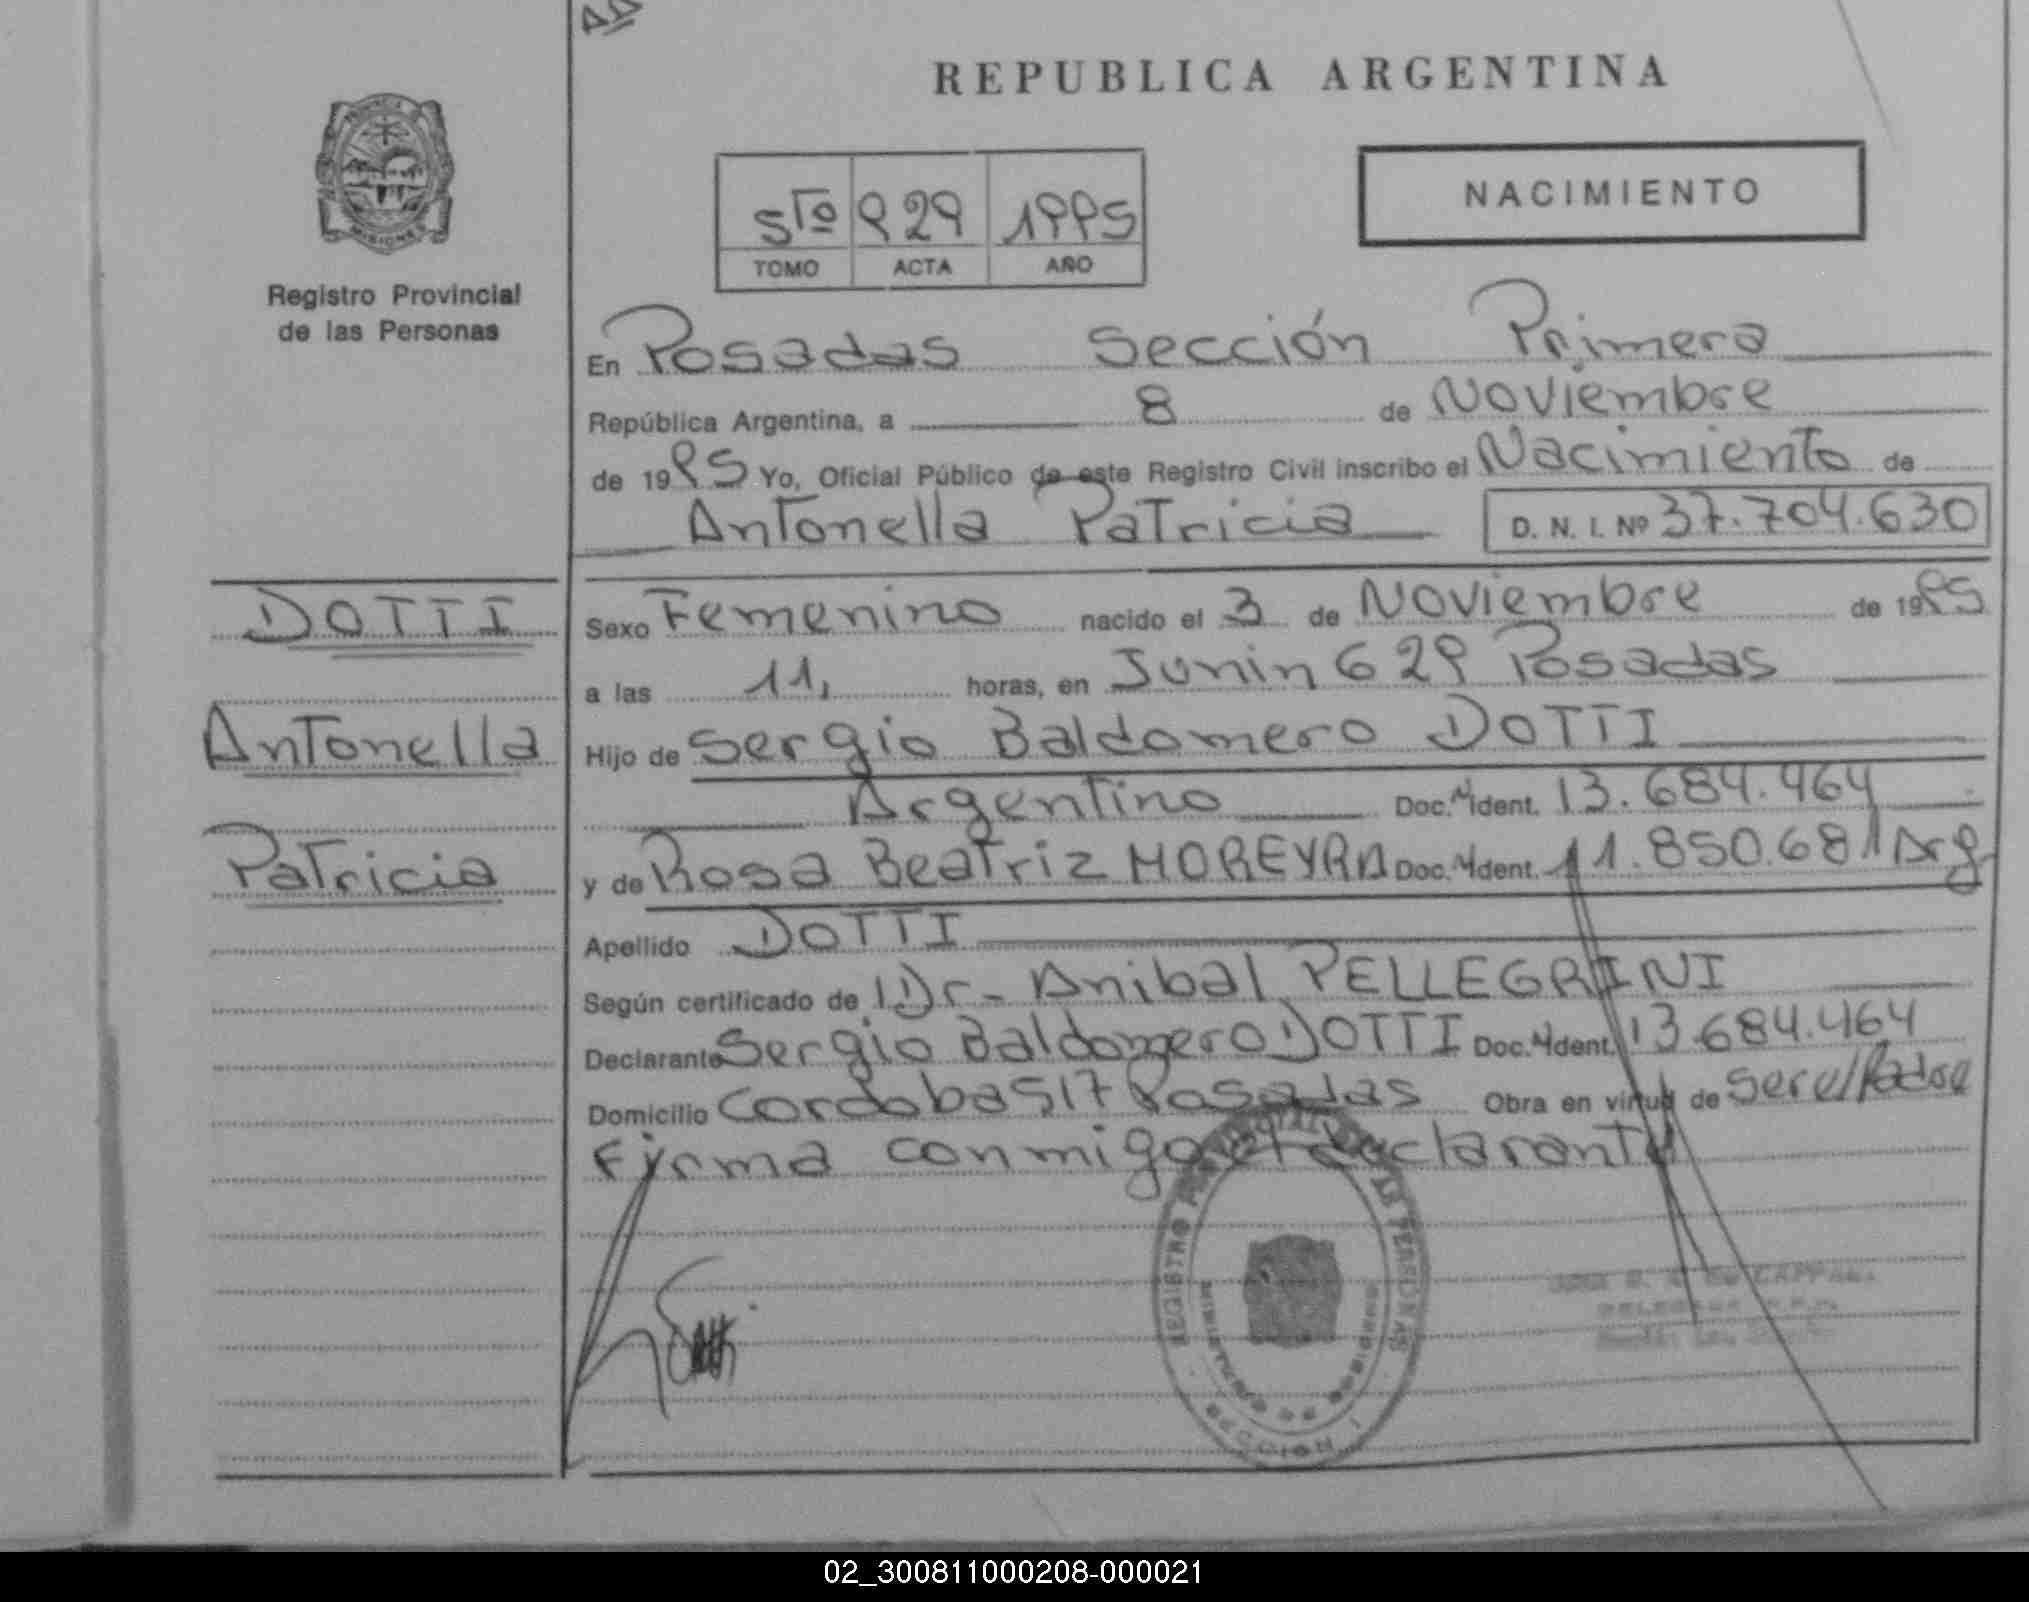 REPUBLICA ARGENTINA
NACIMIENTO
5to 929 1995
TOMO ACTA AÑO
MISIONES
Registro Provincial
de las Personas
En Posadas Sección Primera
República Argentina, a 8 de Noviembre
de 1995 Yo, Oficial Público de este Registro Civil inscribo el Nacimiento de
Antonella Patricia D. N. I. Nº 37.704.630
DOTTI
Antonella
Patricia
Sexo Femenino nacido el 3 de Noviembre de 1995
a las 11, horas, en Junin 629 Posadas
Hijo de Sergio Baldomero DOTTI
Argentino Doc. Ident. 13.684.464
y de Rosa Beatriz MOREYRA Doc. Ident. 11.850.681 Arg
Apellido DOTTI
Según certificado de Dr- Anibal PELLEGRINI
Declarante Sergio Baldomero DOTTI Doc. Ident. 13.684.464
Domicilio Cordoba 517 Posadas Obra en virtud de ser el Padre
Firma conmigo el declarante
REGISTRO PROVINCIAL DE LAS PERSONAS
MINISTERIO DE GOBIERNO
SECCION 1
02_300811000208-000021